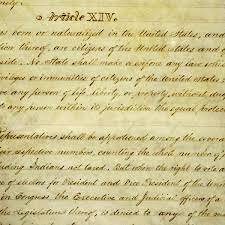 Article XIV.
ns born or naturalized in the United States, and
tion thereof, are citizens of the United States and o
side. No State shall make or enforce any law which
vileges or immunities of citizens of the United States
ive any person of life, liberty, or property, without du
to any person within its jurisdiction the equal protec
Representatives shall be apportioned among the severa
ir respective numbers, counting the whole number of
cluding Indians not taxed. But when the right to vote a
of electors for President and Vice President of the Unite
in Congress, the Executive and Judicial officers of a
the Legislature thereof, is denied to any of the